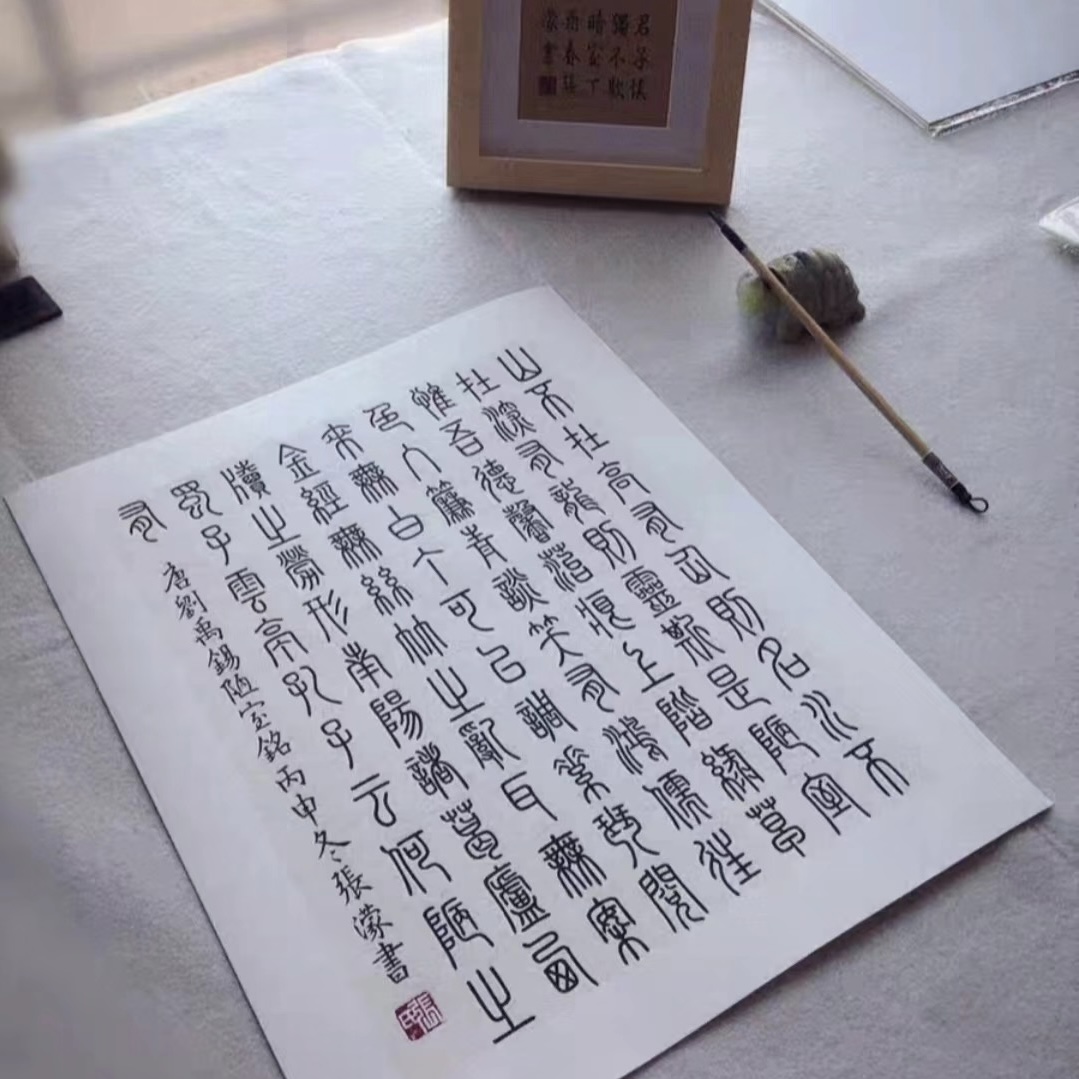 君子慎
獨不欺
暗室丁
酉春張
濛書
山不在高有仙則名水不
在深有龍則靈斯是陋室
惟吾德馨苔痕上階綠草
色入簾青談笑有鴻儒往
來無白丁可以調素琴閱
金經無絲竹之亂耳無案
牘之勞形南陽諸葛廬西
蜀子雲亭孔子云何陋之
有
唐劉禹錫陋室銘丙申冬張濛書